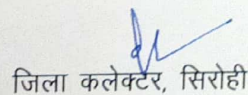 जिला कलेक्टर, सिरोही